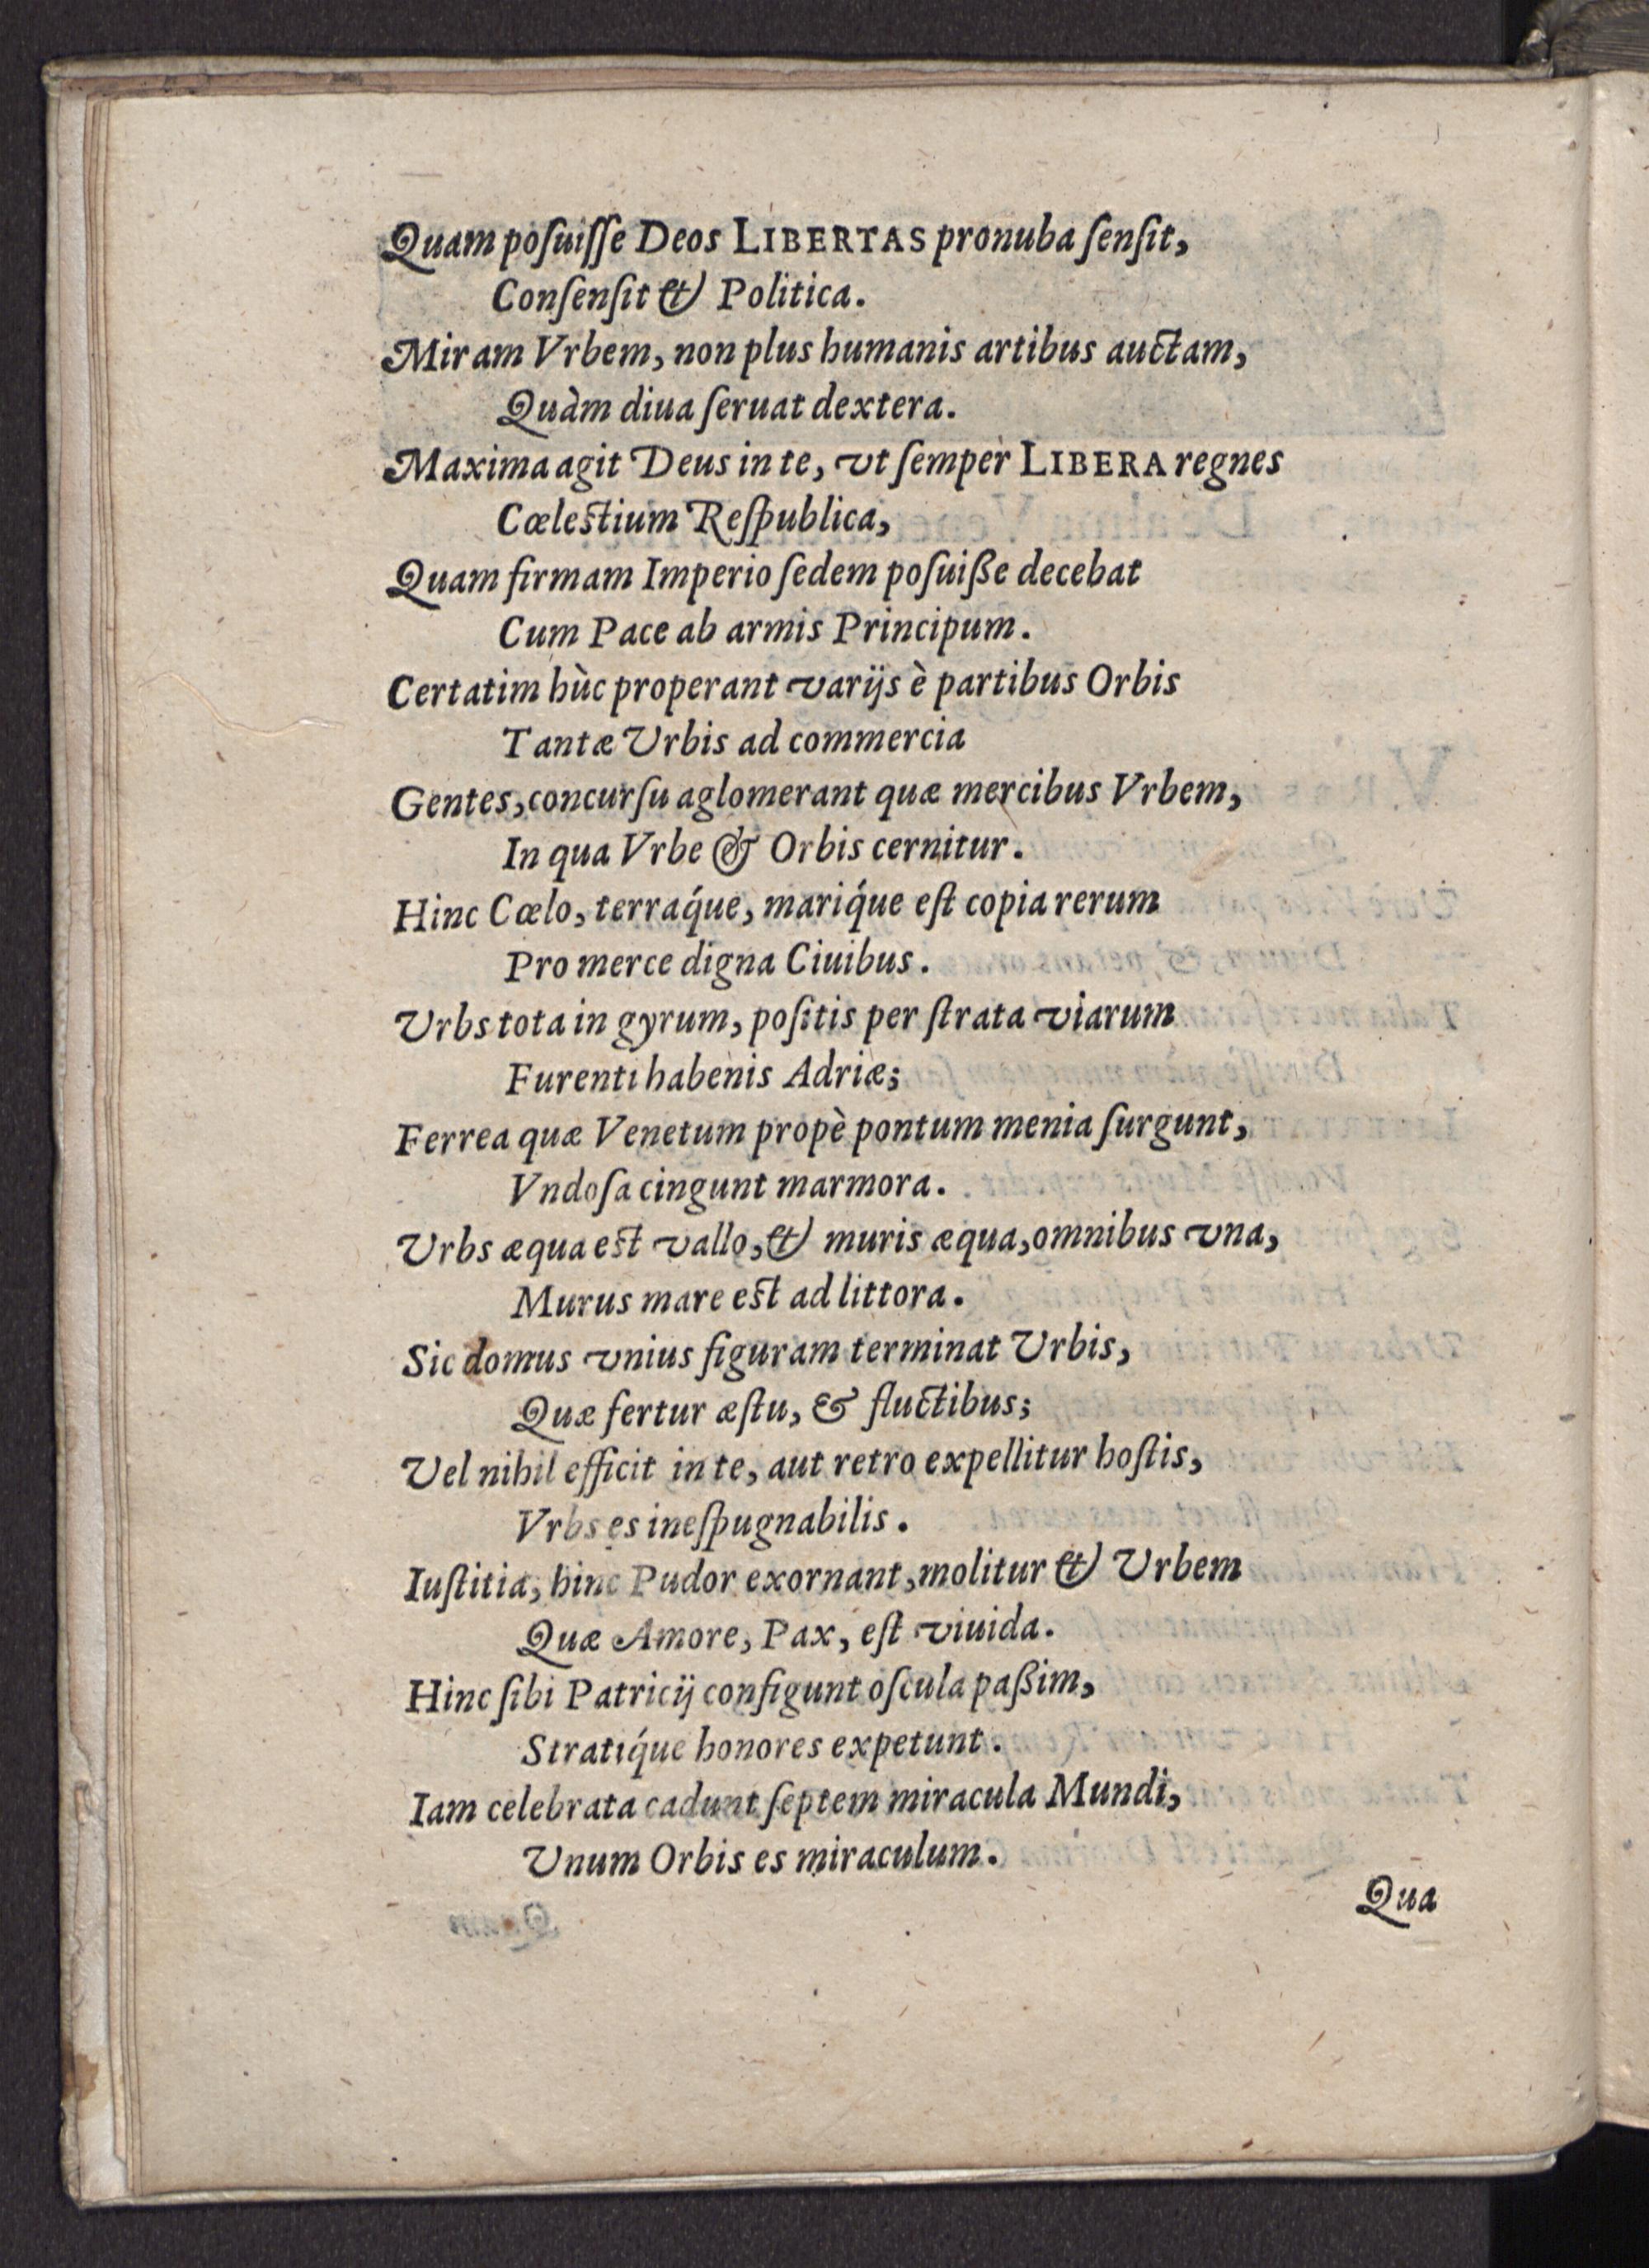 Quam poſuiſſe Deos LIBERTAS pronuba ſenſit,
Conſenſit & Politica.
Miram Vrbem, non plus humanis artibus auctam,
Quàm diua ſeruat dextera.
Maxima agit Deus in te, vt ſemper LIBERA regnes
Cœleſtium Reſpublica,
Quam firmam Imperio ſedem poſuiße decebat
Cum Pace ab armis Principum.
Certatim hùc properant varijs è partibus Orbis
Tantæ Vrbis ad commercia
Gentes, concurſu aglomerant quæ mercibus Vrbem,
In qua Vrbe & Orbis cernitur.
Hinc Cœlo, terraq́ue, mariq́ue eſt copia rerum
Pro merce digna Ciuibus.
Vrbs tota in gyrum, poſitis per ſtrata viarum
Furenti habenis Adriæ;
Ferrea quæ Venetum propè pontum menia ſurgunt,
Vndoſa cingunt marmora.
Vrbs æqua eſt vallo, & muris æqua, omnibus vna,
Murus mare eſt ad littora.
Sic domus vnius figuram terminat Vrbis,
Quæ fertur æſtu, & fluctibus;
Vel nihil efficit in te, aut retro expellitur hoſtis,
Vrbs es ineſpugnabilis.
Iuſtitia, hinc Pudor exornant, molitur & Vrbem
Quæ Amore, Pax, eſt viuida.
Hinc ſibi Patricij configunt oſcula paßim,
Stratiq́ue honores expetunt.
Iam celebrata cadunt ſeptem miracula Mundi,
Vnum Orbis es miraculum.
Qua